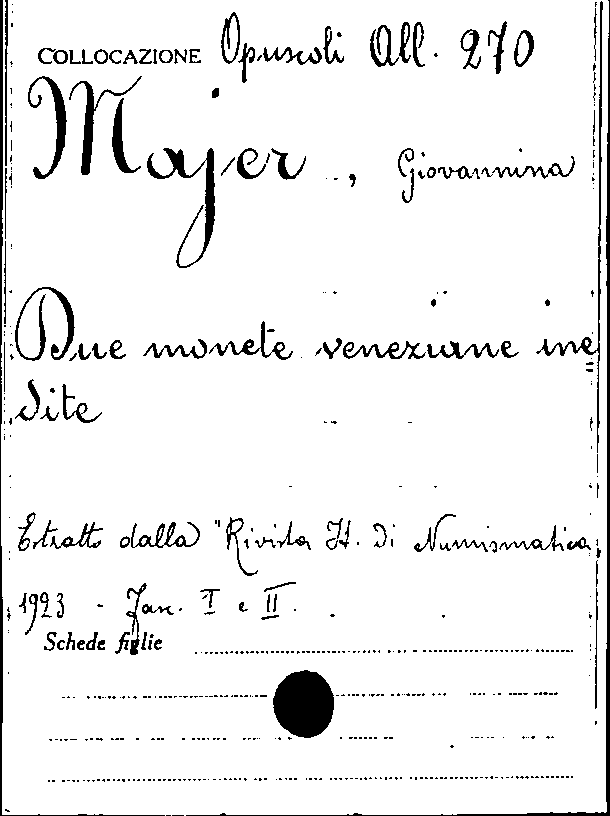 COLLOCAZIONE Opuscoli All. 270
Majer, Giovannina
Due monete veneziane ine
dite
Estratto dalla "Rivista It. di Numismatica,
1923 - Fasc. I e II.
Schede figlie